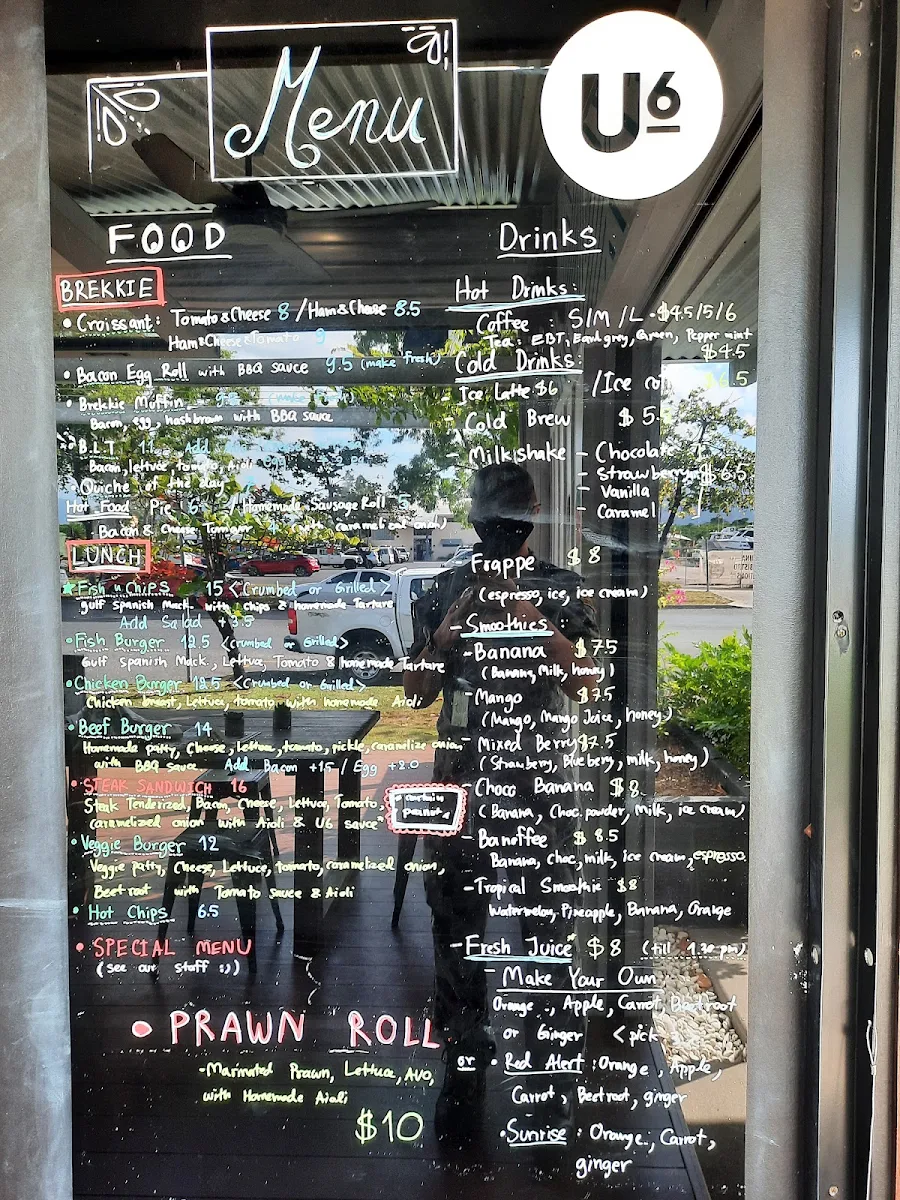 Menu
U6
FOOD
BREKKIE
• Croissant: Tomato & Cheese 8 / Ham & Cheese 8.5
Ham & Cheese & Tomato 9
• Bacon Egg Roll with BBQ sauce 9.5 (make fresh)
• Brekkie Muffin
Bacon, egg, hashbrown with BBQ sauce
• B.L.T 11 Add
Bacon, lettuce, tomato, Aioli
• Quiche of the day
Hot Food Pie 6 / Homemade Sausage Roll 5
Bacon & Cheese (with caramelized onion)
LUNCH
Fish n Chips 15 <Crumbed or Grilled>
gulf Spanish Mack. with chips & homemade Tartare
Add Salad +3.5
• Fish Burger 12.5 <crumbed or Grilled>
Gulf Spanish Mack, Lettuce, Tomato & homemade Tartare
• Chicken Burger 12.5 <Crumbed or Grilled>
Chicken breast, Lettuce, tomato, with homemade Aioli
• Beef Burger 14
Homemade patty, Cheese, Lettuce, tomato, pickle, caramelize onion,
with BBQ sauce Add Bacon +1.5 / Egg +2.0
• STEAK SANDWICH 16
Steak Tenderized, Bacon, Cheese, Lettuce, Tomato,
caramelized onion with Aioli & U6 sauce
• Veggie Burger 12
Veggie patty, Cheese, Lettuce, tomato, caramelized onion,
Beetroot with Tomato sauce & Aioli
• Hot Chips 6.5
• SPECIAL MENU
(see our staff :))
• PRAWN ROLL
-Marinated Prawn, Lettuce, Avo,
with Homemade Aioli
$10
Drinks
Hot Drinks:
Coffee : S/M/L - $4.5/5/6
Tea: EBT, Earl grey, Green, Peppermint
$4.5
Cold Drinks:
- Ice Latte $6 / Ice 6.5
- Cold Brew $5.
- Milkshake - Chocolate
- Strawberry $6.5
- Vanilla
- Caramel
Frappe $8
(espresso, ice, ice cream)
- Smoothies:
- Banana $7.5
(Banana, Milk, honey)
- Mango $7.5
(Mango, Mango Juice, honey)
- Mixed Berry $7.5
(Strawberry, Blueberry, milk, honey)
- Choco Banana $8
(Banana, Choc. powder, Milk, ice cream)
- Banoffee $8.5
Banana, choc, milk, ice cream, espresso.
- Tropical Smoothie $8
Watermelon, Pineapple, Banana, Orange
- Fresh Juice $8 (till 1.30 pm)
- Make Your Own
Orange, Apple, Carrot, Beetroot
or Ginger <pick
or • Red Alert : Orange, Apple,
Carrot, Beetroot, ginger
• Sunrise : Orange, Carrot,
ginger